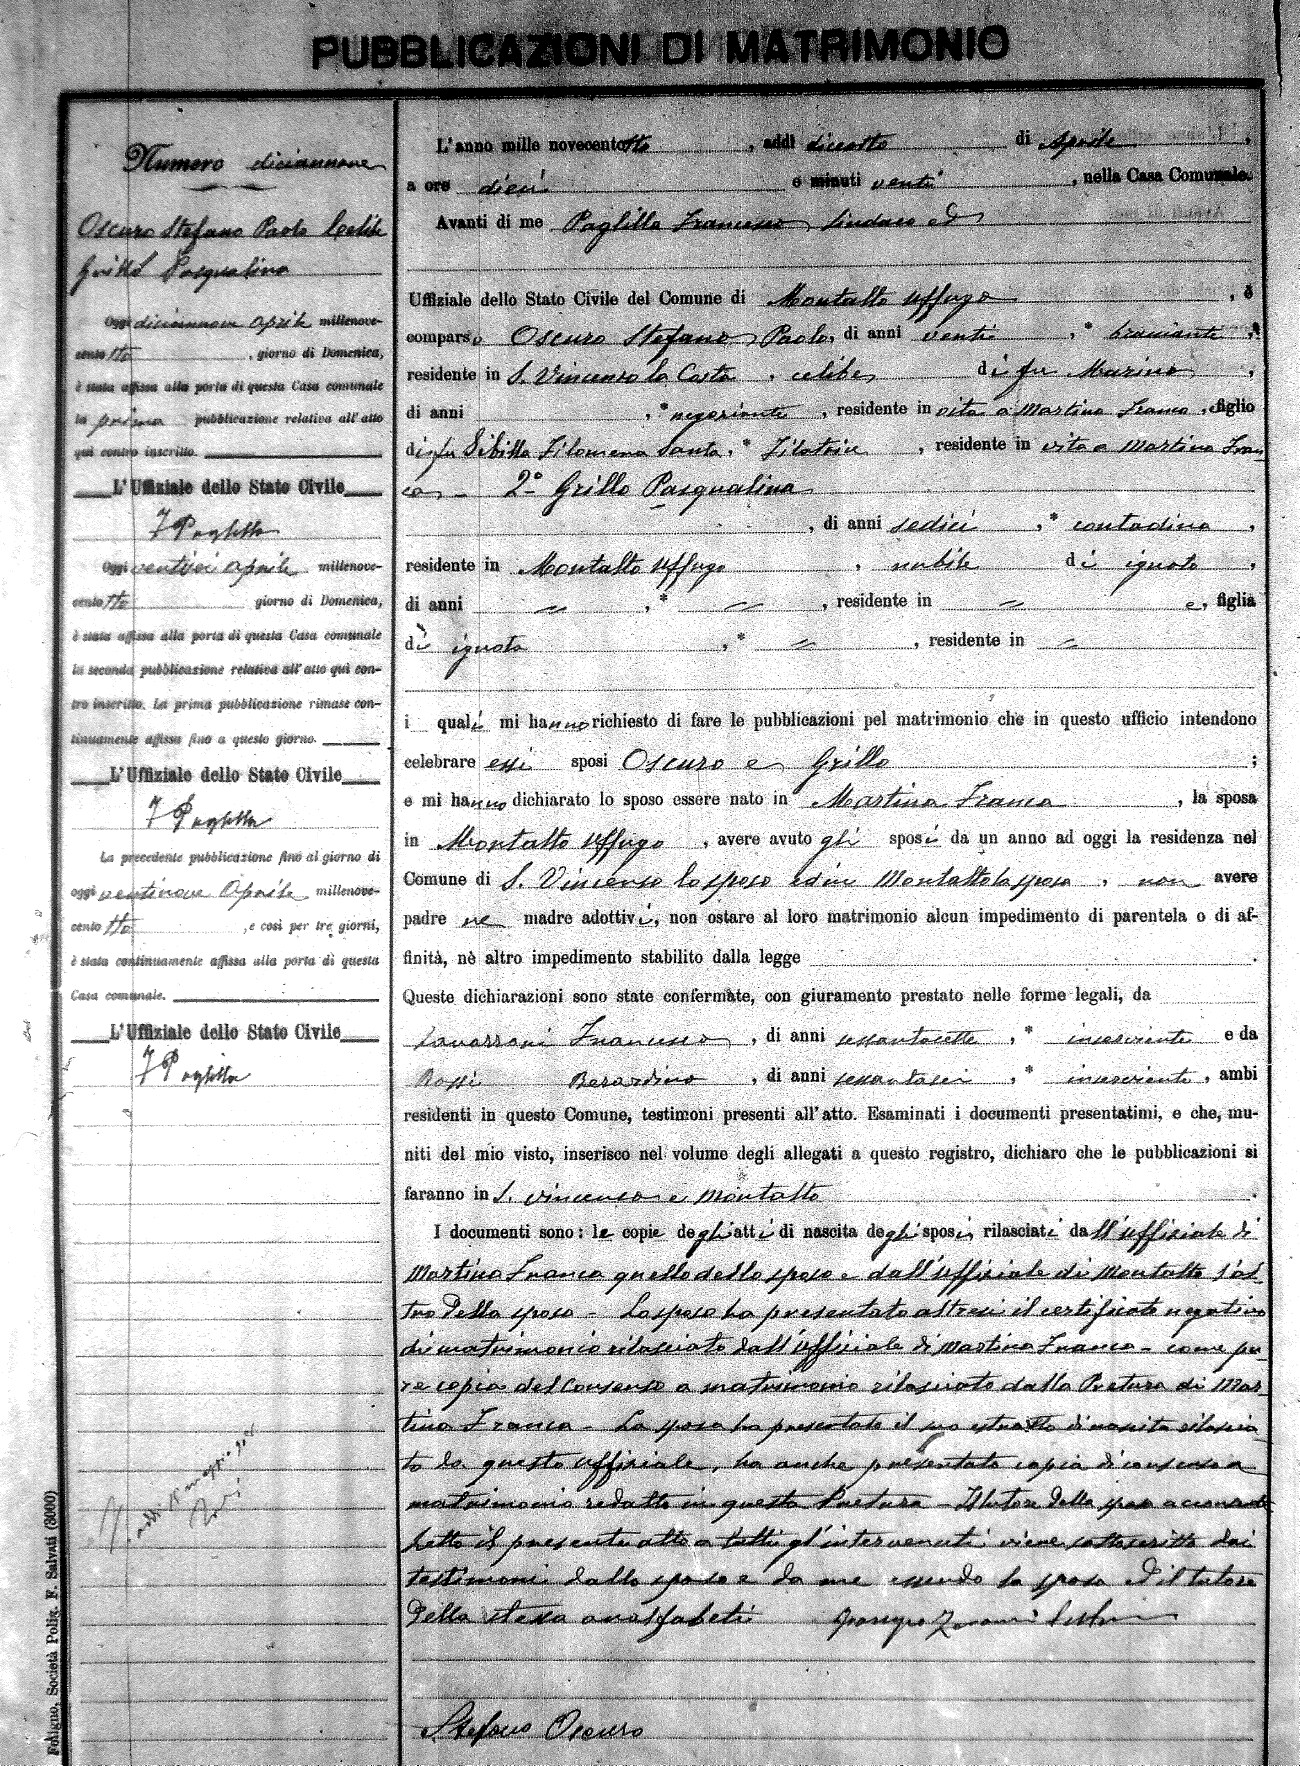 PUBBLICAZIONI DI MATRIMONIO
Numero diciannove
Oscuro Stefano Paolo Celibe
Grillo Pasqualina
Oggi diciannove Aprile millenove-
cento otto, giorno di Domenica,
è stata affissa alla porta di questa Casa comunale
la prima pubblicazione relativa all'atto
qui contro inscritto.
L'Uffiziale dello Stato Civile
F Paglilla
Oggi ventisei Aprile millenove-
cento otto giorno di Domenica,
è stata affissa alla porta di questa Casa comunale
la seconda pubblicazione relativa all'atto quì con-
tro inscritto. La prima pubblicazione rimase con-
tinuamente affissa fino a questo giorno.
L'Uffiziale dello Stato Civile
F Paglilla
La precedente pubblicazione fino al giorno di
oggi ventinove Aprile millenove-
cento otto, e così per tre giorni,
è stata continuamente affissa alla porta di questa
Casa comunale.
L'Uffiziale dello Stato Civile
F Paglilla
Foligno, Società Polig. F. Salvati (3000)
L'anno mille novecentotto, addì diciotto di Aprile,
a ore dieci e minuti venti, nella Casa Comunale.
Avanti di me Paglilla Francesco Sindaco ed
Uffiziale dello Stato Civile del Comune di Montalto Uffugo, è
comparso Oscuro Stefano Paolo, di anni venti, * bracciante,
residente in S. Vincenzo la Costa, celibe di fu Marino,
di anni , * negoziante, residente in vita a Martina Franca, figlio
di fu Sibilla Filomena Santa, * Filatrice, residente in vita a Martina Fran
ca - 2° Grillo Pasqualina
, di anni sedici, * contadina,
residente in Montalto Uffugo, nubile di ignoto,
di anni " , * " , residente in " e, figlia
di ignota , * " , residente in "
i quali mi hanno richiesto di fare le pubblicazioni pel matrimonio che in questo ufficio intendono
celebrare essi sposi Oscuro e Grillo ;
e mi hanno dichiarato lo sposo essere nato in Martina Franca, la sposa
in Montalto Uffugo, avere avuto gli sposi da un anno ad oggi la residenza nel
Comune di S. Vincenzo lo sposo ed in Montalto la sposa, non avere
padre ne madre adottivi, non ostare al loro matrimonio alcun impedimento di parentela o di af-
finità, nè altro impedimento stabilito dalla legge .
Queste dichiarazioni sono state confermate, con giuramento prestato nelle forme legali, da
Francesco, di anni sessantasette, * inserviente e da
Rossi Berardino, di anni sessantasei, * inserviente, ambi
residenti in questo Comune, testimoni presenti all'atto. Esaminati i documenti presentatimi, e che, mu-
niti del mio visto, inserisco nel volume degli allegati a questo registro, dichiaro che le pubblicazioni si
faranno in S. Vincenzo e Montalto .
I documenti sono: le copie degli atti di nascita degli sposi, rilasciati dall'uffiziale di
Martina Franca quello dello sposo e dall'uffiziale di Montalto l'al-
tro della sposa - Lo sposo ha presentato altresì il certificato negativo
di matrimonio rilasciato dall'uffiziale di Martina Franca - come pu-
re copia del consenso a matrimonio rilasciato dalla Pretura di Mar
tina Franca - La sposa ha presentato il suo estratto di nascita rilascia
to da questo uffiziale, ha anche presentato copia di consenso a
matrimonio redatto in questa Pretura - Il tutore della sposa acconsente
Letto il presente atto a tutti gl'intervenuti viene sottoscritto dai
testimoni dallo sposo e da me essendo la sposa ed il tutore
della stessa analfabeti
Stefano Oscuro